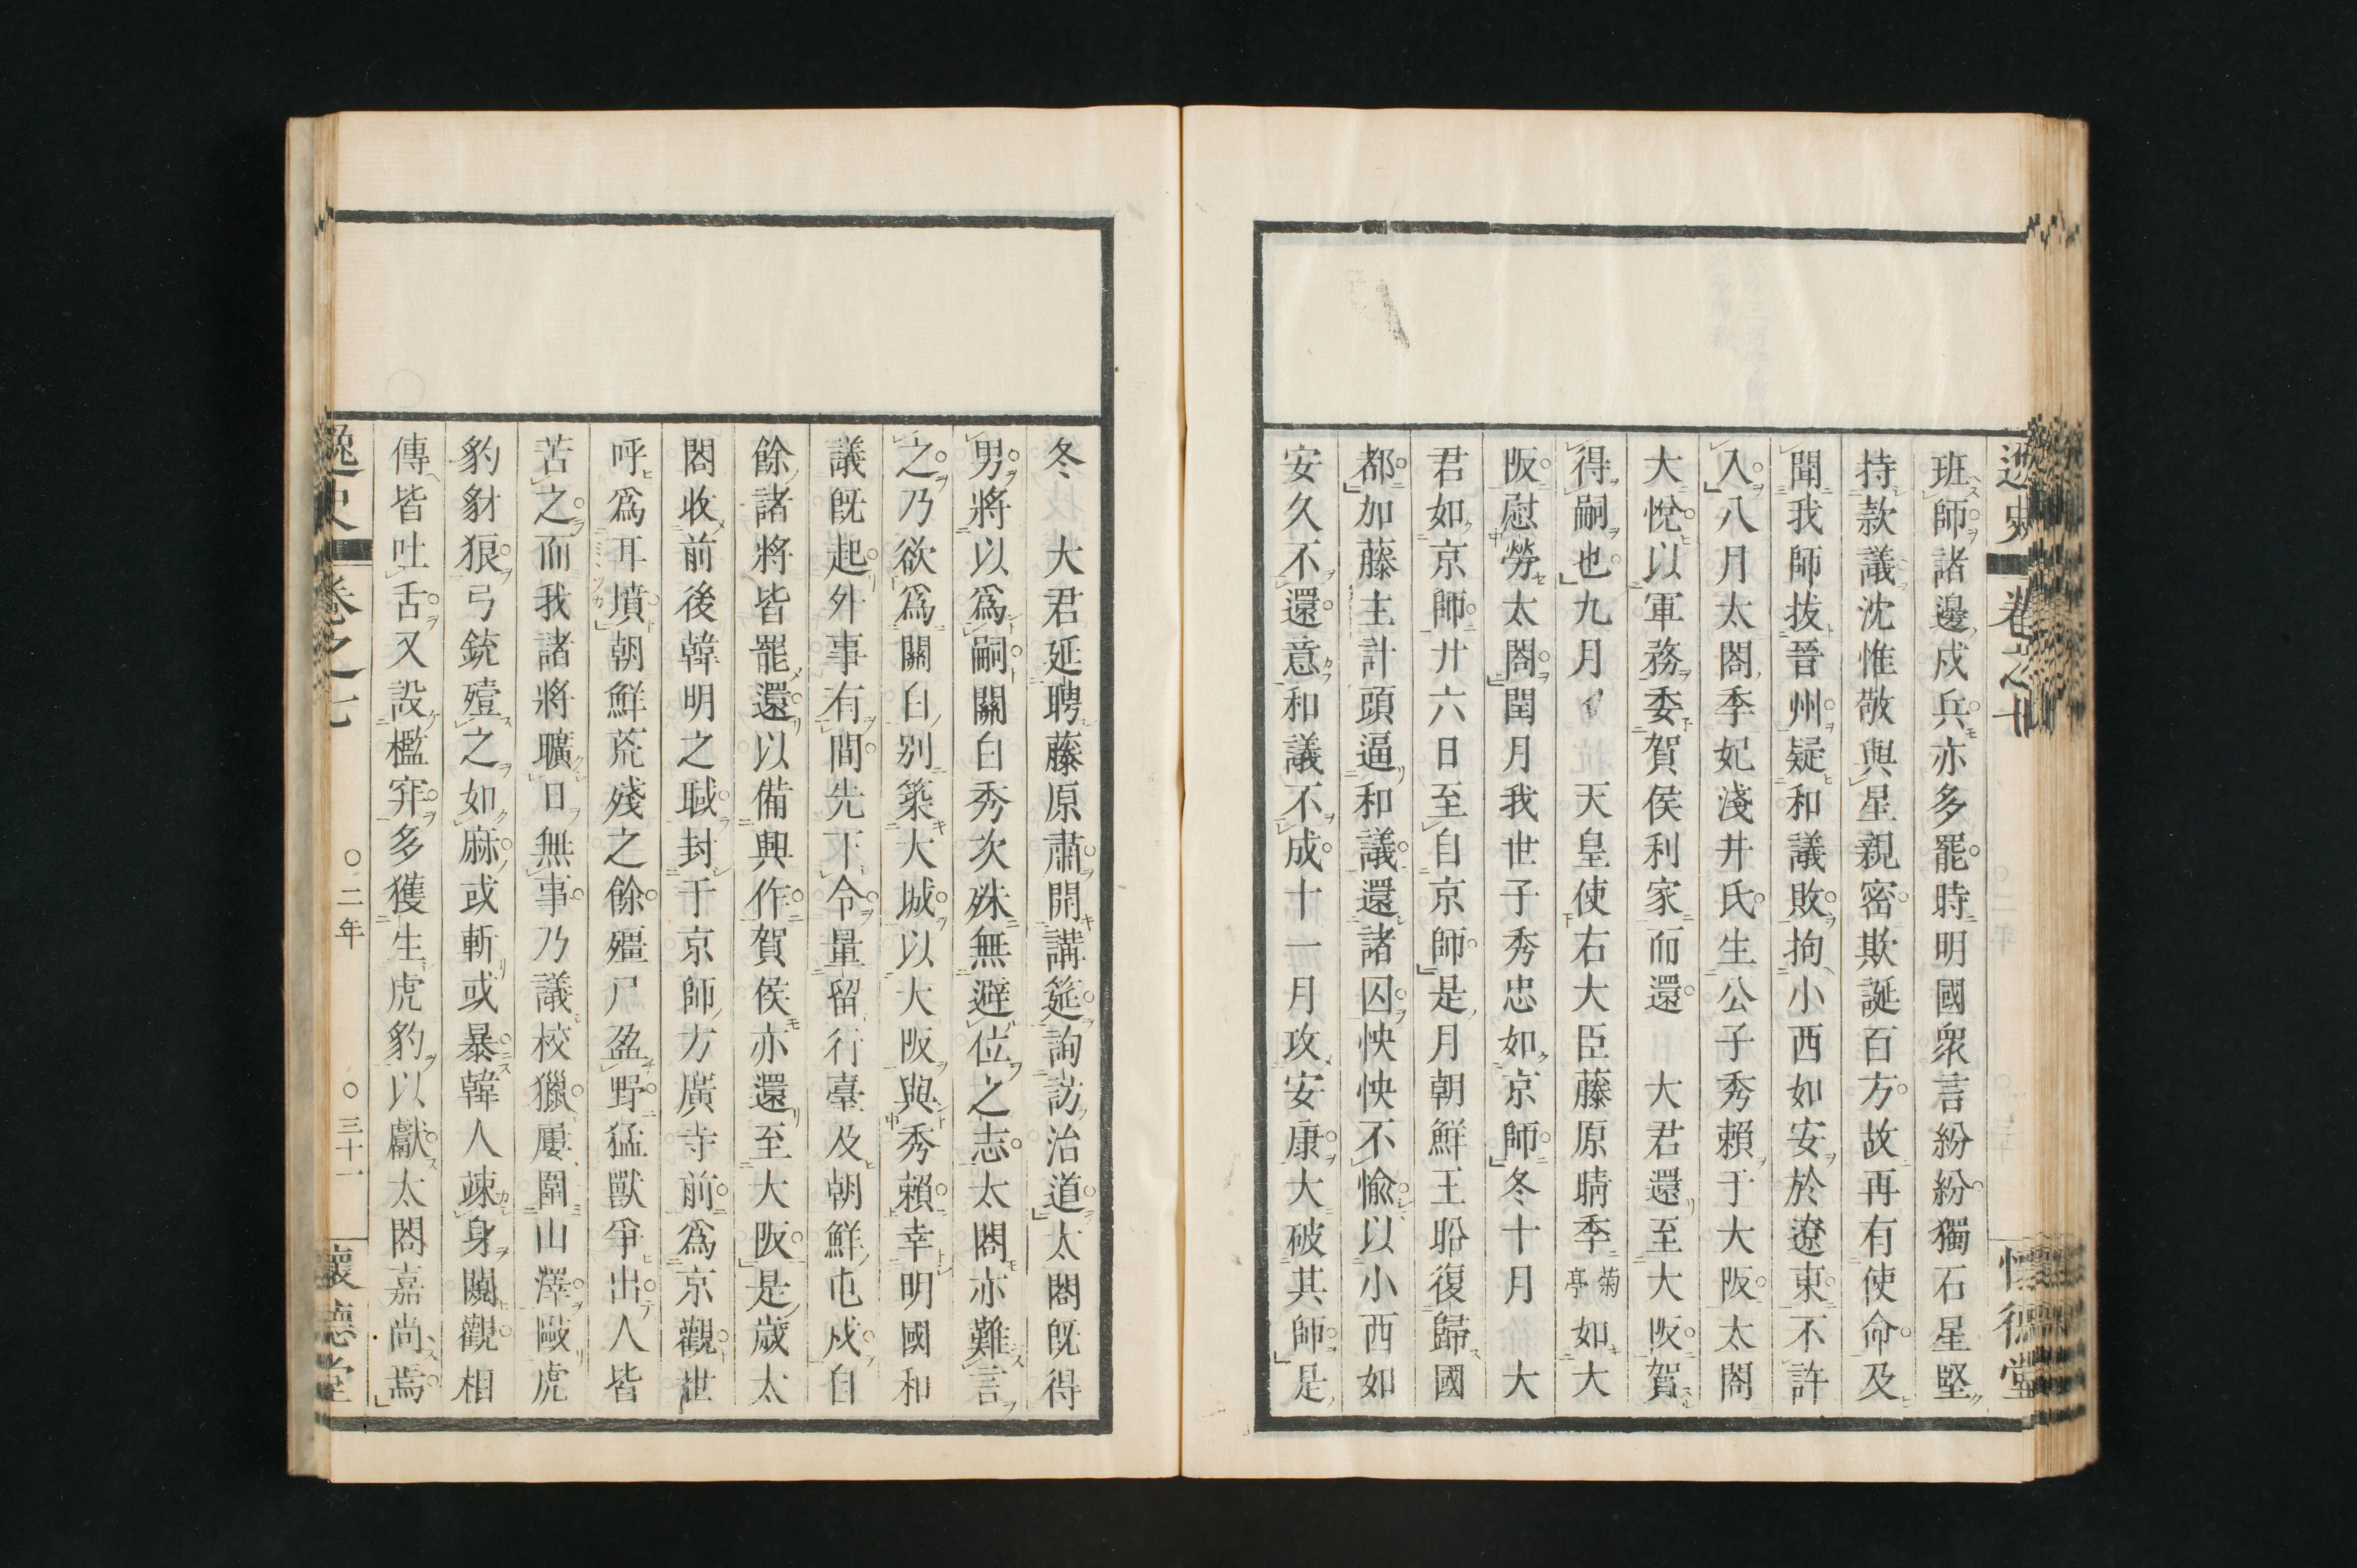 班師諸邊戍兵亦多罷時明國衆言紛紛獨石星堅
持款議沈惟敬與星親密欺誕百方故再有使命及
聞我師拔晉州疑和議敗拘小西如安於遼東不許
入八月太閤季妃淺井氏生公子秀賴于大阪太閤
大悅以軍務委賀侯利家而還 大君還至大阪賀
得嗣也九月 天皇使右大臣藤原晴季菊亭如大
阪慰勞太閤閏月我世子秀忠如京師冬十月 大
君如京師廿六日至自京師是月朝鮮王昖復歸國
都加藤主計頭逼和議還諸囚怏怏不愉以小西如
安久不還意和議不成十一月攻安康大破其師是
冬 大君延聘藤原肅開講筵詢訪治道太閤既得
男將以爲嗣關白秀次殊無避位之志太閤亦難言
之乃欲爲關白別築大城以大阪與秀賴幸明國和
議既起外事有間先下令量留行臺及朝鮮屯戍自
餘諸將皆罷還以備興作賀侯亦還至大阪是歲太
閤收前後韓明之聝封于京師方廣寺前爲京觀世
呼爲耳墳朝鮮荒殘之餘殭尸盈野猛獸爭出人皆
苦之而我諸將曠日無事乃議校獵屢圍山澤毆虎
豹豺狼弓銃殪之如麻或斬或暴韓人竦身闚觀相
傳皆吐舌又設檻穽多獲生虎豹以獻太閤嘉尚焉
逸史 卷之七 ○二年 ○三十一 懷德堂